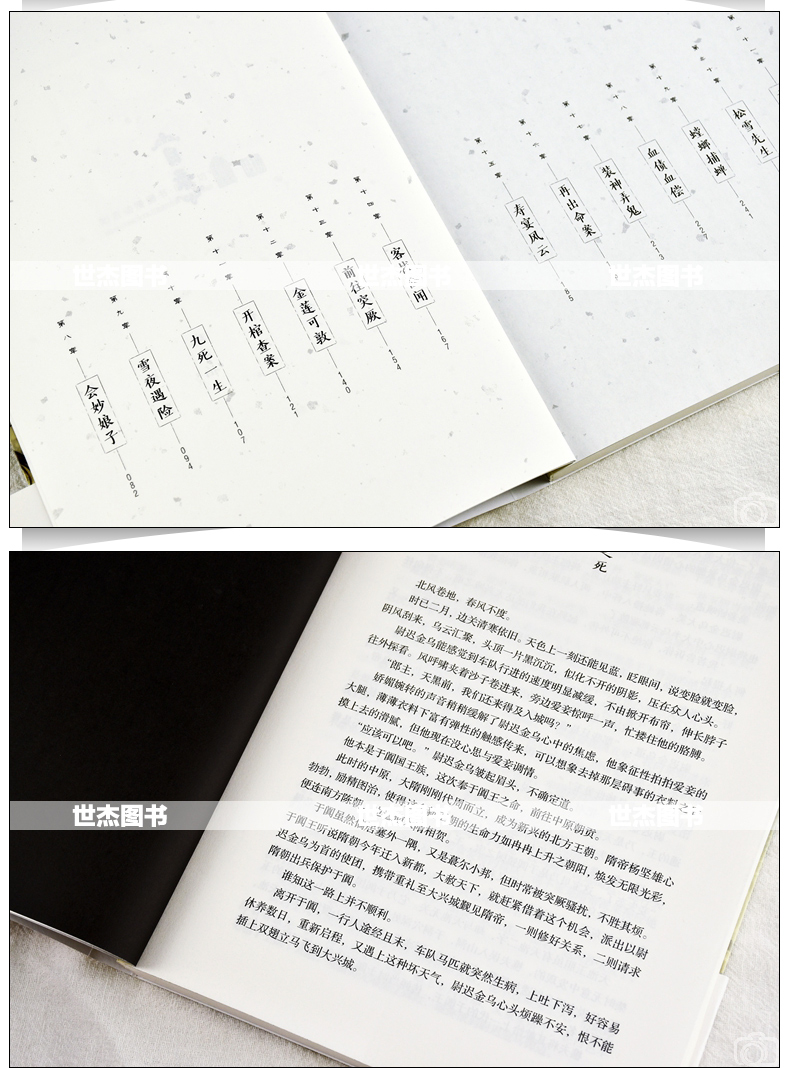 第八章
会妙娘子
082
第九章
雪夜遇险
094
第十章
九死一生
107
第十一章
开棺查案
121
第十二章
金莲可敦
140
第十三章
前往突厥
154
第十四章
闻
167
第十五章
寿宴风云
185
第十六章
再出命案
第十七章
装神弄鬼
213
第十八章
血债血偿
227
第十九章
螳螂捕蝉
241
第二十章
松雪先生
世杰图书
世杰图书
世杰图书
死
北风卷地，春风不度。
时已二月，边关清寒依旧。天色上一刻还能见蓝，眨眼间，说变脸就变脸，
阴风刮来，乌云汇聚，头顶一片黑沉沉，似化不开的阴影，压在众人心头。
尉迟金乌能感觉到车队行进的速度明显减缓，不由掀开布帘，伸长脖子
往外探看。风呼啸夹着沙子卷进来，旁边爱妾惊呼一声，忙搂住他的胳膊。
“郎主，天黑前，我们还来得及入城吗？”
娇媚婉转的声音稍稍缓解了尉迟金乌心中的焦虑，他象征性拍拍爱妾的
大腿，薄薄衣料下富有弹性的触感传来，可以想象去掉那层碍事的衣料
摸上去的滑腻，但他现在没心思与爱妾调情。
“应该可以吧。”尉迟金乌皱起眉头，不确定道。
他本是于阗国王族，这次奉于阗王之命，前往中原朝贡。
此时的中原，大隋刚刚代周而立，成为新兴的北方王朝。隋帝杨坚雄心
勃勃，励精图治，使得 朝的生命力如冉冉上升之朝阳，焕发无限光彩，
便连南方陈朝 隋相贺。
于阗虽然 居塞外一隅，又是蕞尔小邦，但时常被突厥骚扰，不胜其烦。
于阗王听说隋朝今年迁入新都，大赦天下，就赶紧借着这个机会，派出以尉
迟金乌为首的使团，携带重礼至大兴城觐见隋帝，一则修好关系，二则请求
隋朝出兵保护于阗。
谁知这一路上并不顺利。
离开于阗，一行人途经且末，车队马匹就突然生病，上吐下泻，好容易
休养数日，重新启程，又遇上这种坏天气，尉迟金乌心头烦躁不安，恨不能
插上双翅立马飞到大兴城。
世杰图书
世杰图书
世杰图书